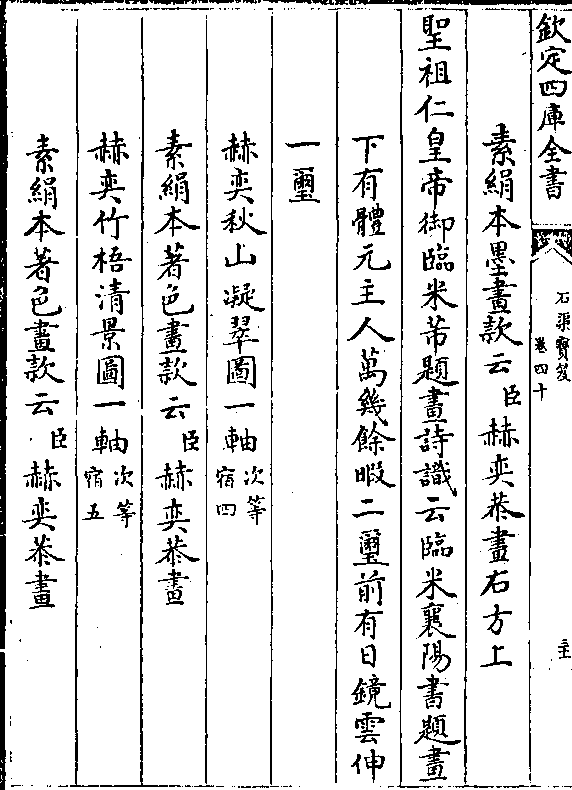 欽定四庫全書
石渠寶笈
卷四十
素絹本墨畫款云臣赫奕恭畫右方上
聖祖仁皇帝御臨米芾題畫詩識云臨米襄陽書題畫
下有體元主人萬幾餘暇二璽前有日鏡雲伸
一璽
赫奕秋山凝翠圖一軸次等宿四
素絹本著色畫款云臣赫奕恭畫
赫奕竹梧清景圖一軸次等宿五
素絹本著色畫款云臣赫奕恭畫